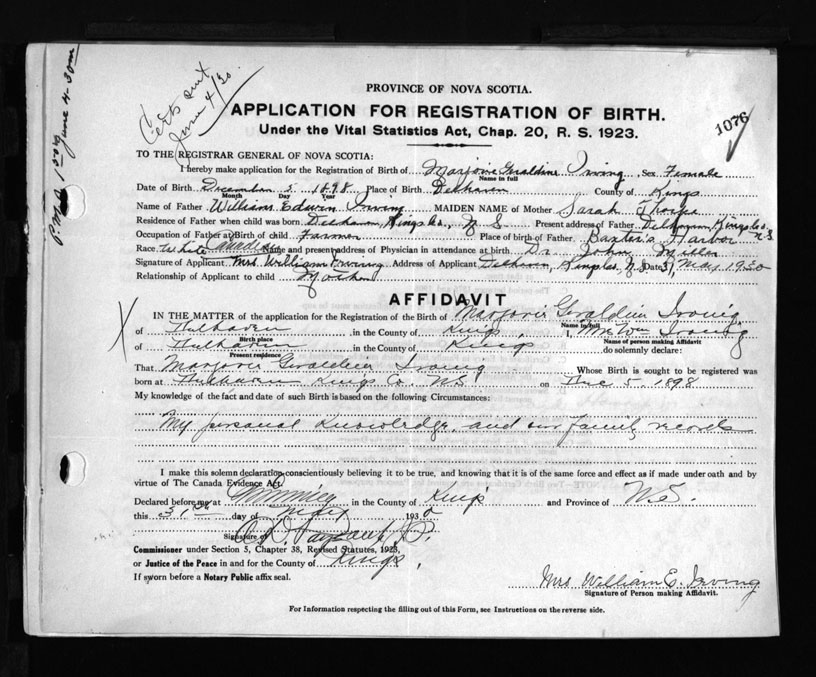 Certs sent
June 4/30
June 4-30
PROVINCE OF NOVA SCOTIA.
APPLICATION FOR REGISTRATION OF BIRTH.
Under the Vital Statistics Act, Chap. 20, R. S. 1923.
1076
TO THE REGISTRAR GENERAL OF NOVA SCOTIA:
I hereby make application for the Registration of Birth of Marjorie Geraldine Irving Sex Female
Name in full
Date of Birth December 5 1898 Place of Birth Delhaven County of Kings
Month Day Year
Name of Father William Edwin Irving MAIDEN NAME of Mother Sarah Thorpe
Residence of Father when child was born Delhaven, Kings Co., N S Present address of Father Delhaven, Kings Co. N.S
Occupation of Father at Birth of child Farmer Place of birth of Father Baxter's Harbor
Race White Canadian Name and present address of Physician in attendance at birth Dr. John Miller
Signature of Applicant Mrs. William Irving Address of Applicant Delhaven, Kings Co N.S Date 31 May 1930
Relationship of Applicant to child Mother
AFFIDAVIT
IN THE MATTER of the application for the Registration of the Birth of Marjorie Geraldine Irving
Name in full
of Delhaven in the County of Kings I, Mrs Wm Irving
Birth place Name of person making Affidavit
of Delhaven in the County of Kings do solemnly declare:
Present residence
That Marjorie Geraldine Irving Whose Birth is sought to be registered was
born at Delhaven Kings Co. N.S. on Dec 5, 1898
My knowledge of the fact and date of such Birth is based on the following Circumstances:
My personal Knowledge and our family records
I make this solemn declaration conscientiously believing it to be true, and knowing that it is of the same force and effect as if made under oath and by
virtue of The Canada Evidence Act.
Declared before me at in the County of Kings and Province of N.S.
this 31st day of May 1930
Signature of
Commissioner under Section 5, Chapter 38, Revised Statutes, 1923,
or Justice of the Peace in and for the County of Kings
If sworn before a Notary Public affix seal.
Mrs William E. Irving
Signature of Person making Affidavit.
For Information respecting the filling out of this Form, see Instructions on the reverse side.